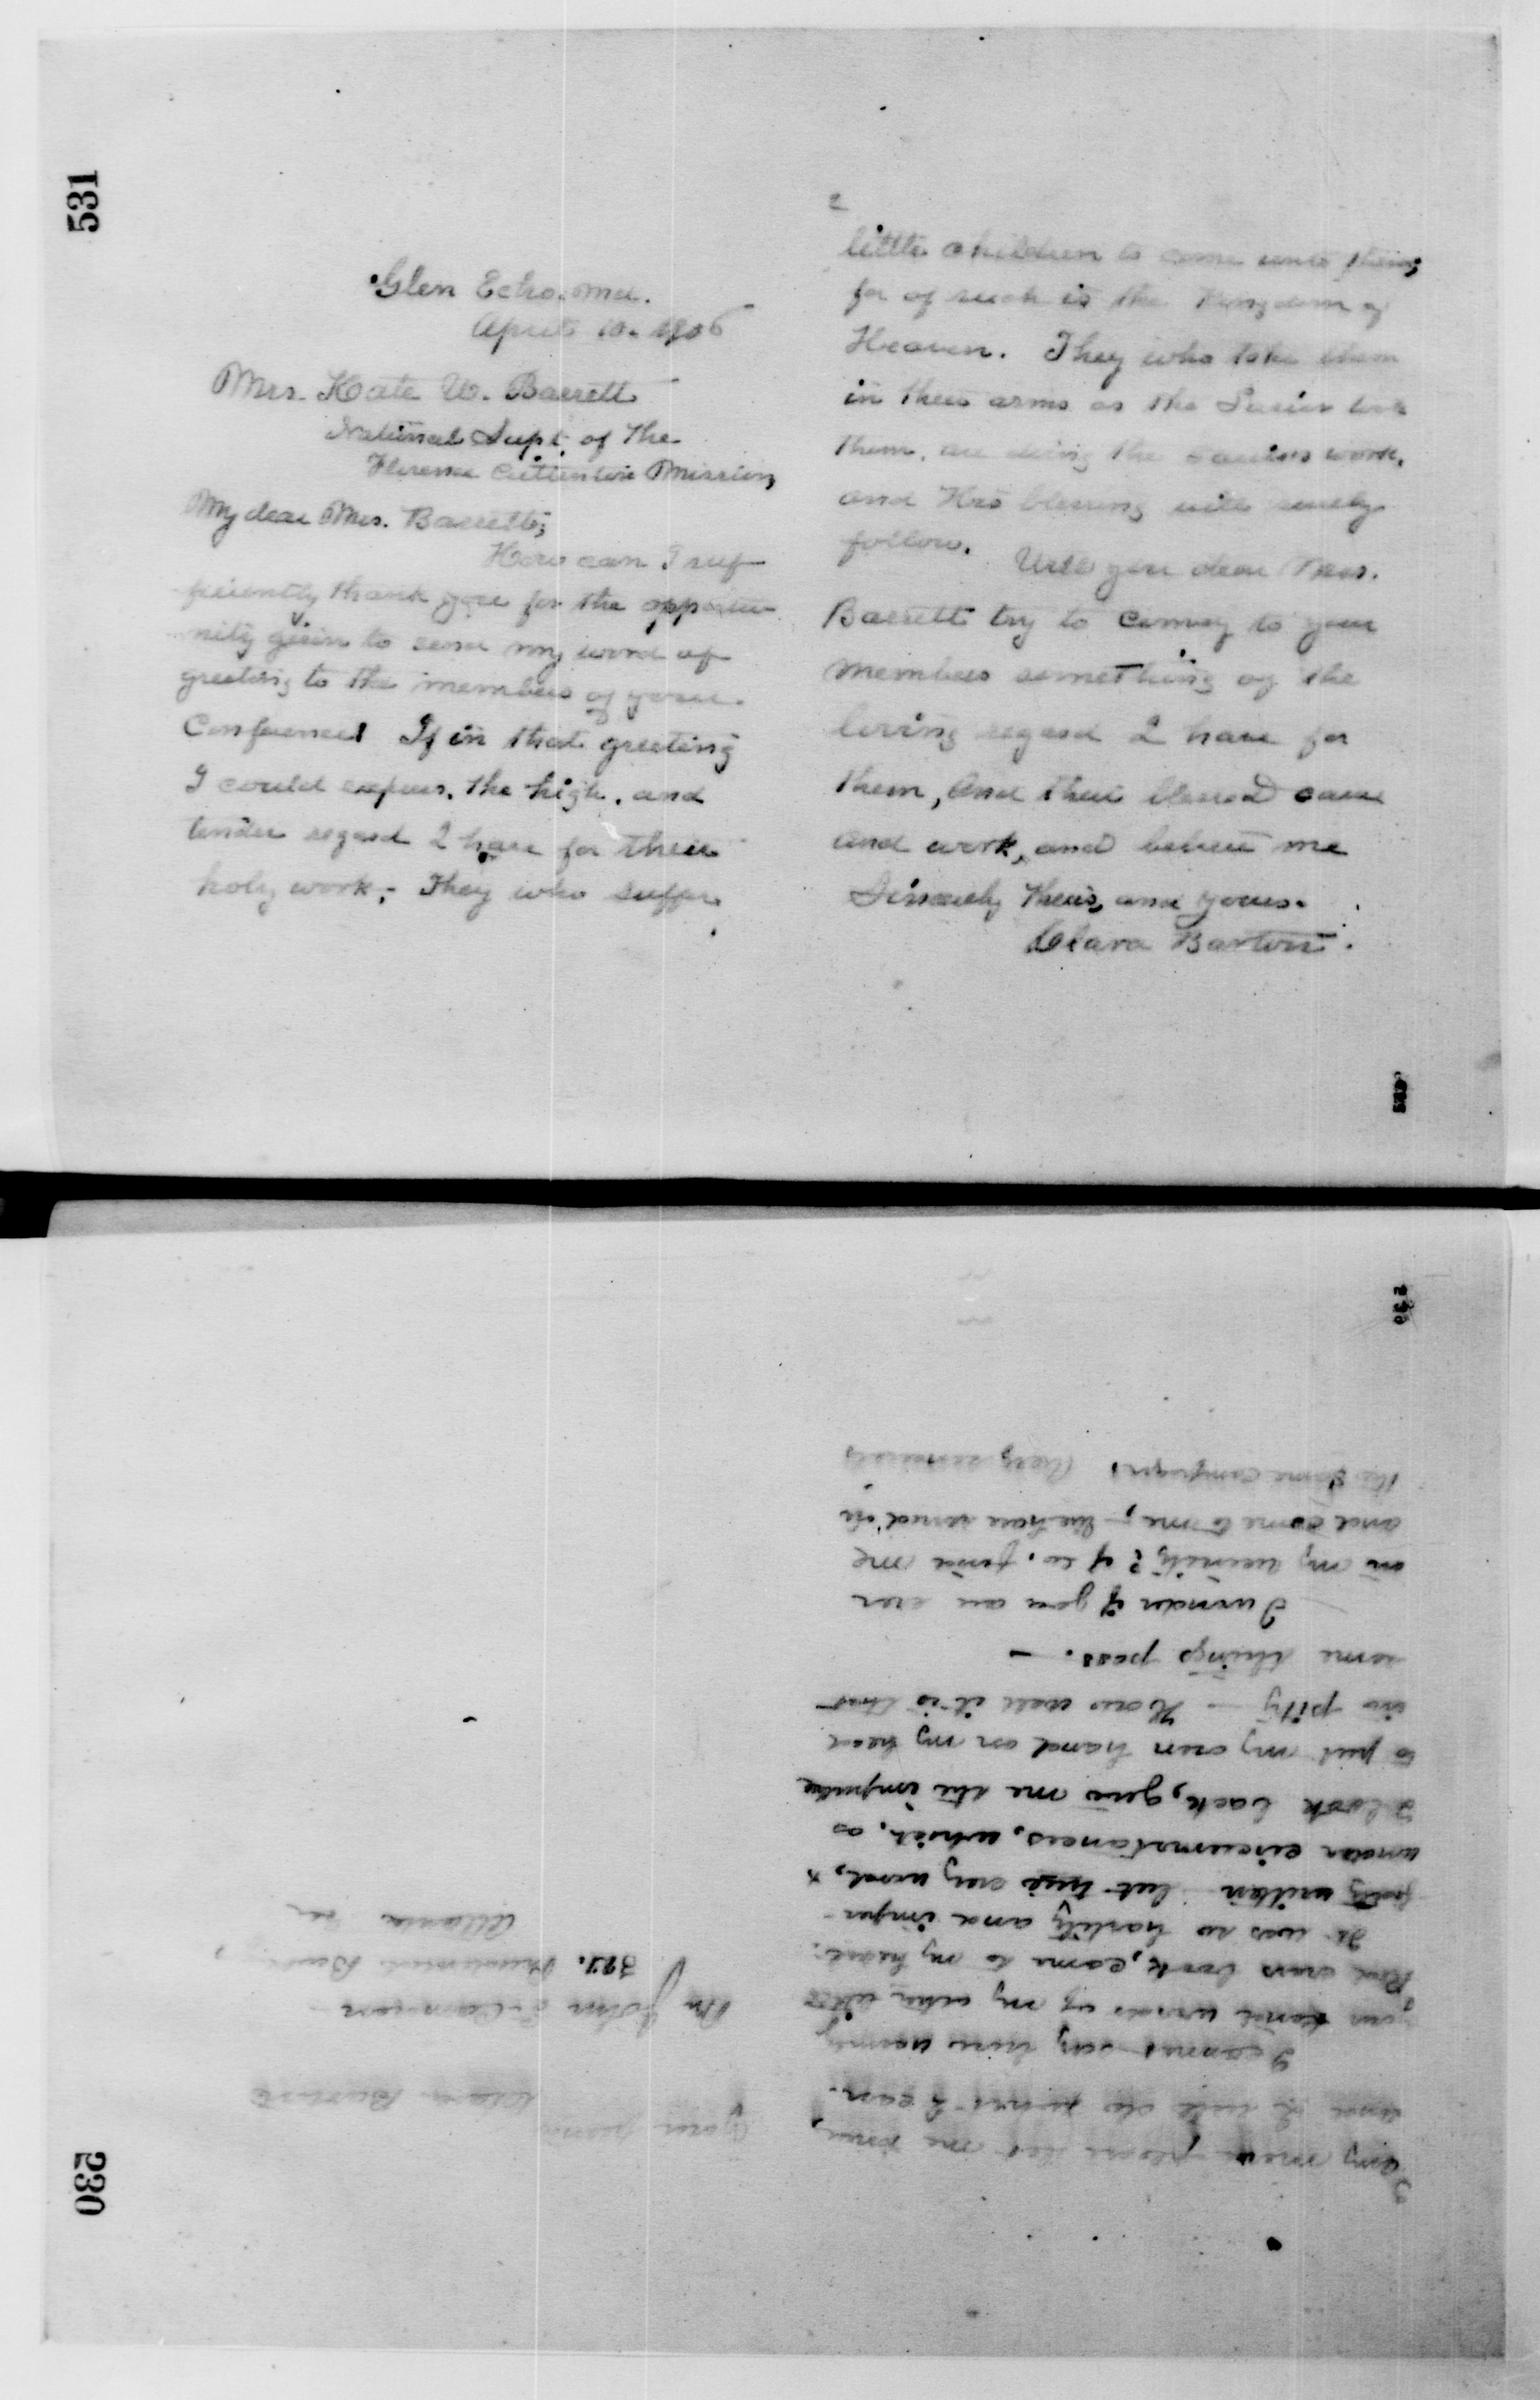 531
Glen Echo. Md.
April 10. 1906
Mrs. Kate W. Barrett
National Supt. of the
Florence Crittenton Mission,
My dear Mrs. Barrett;
How can I suf-
ficiently thank you for the opportu-
nity given to send my word of
greeting to the members of your
Conference! If in that greeting
I could express, the high, and
tender regard I have for their
holy work,- They who suffer
2
little children to come unto them,
for of such is the Kingdom of
Heaven. They who take them
in their arms as the Savior took
them, are doing the Saviors work,
and His blessing will surely
follow.
Will you dear Mrs.
Barrett try to convey to your
members something of the
loving regard I have for
them, and their blessed cause
and work, and believe me
Sincerely theirs, and yours.
Clara Barton.
530
2
any more please let me know,
and I will do what I can.
I cannot say how warmly
your kind words of my little
Red Cross book, came to my heart.
It was so hastily and imper-
fectly written but true every word,
under circumstances, which, as
I look back, gives me the impulse
to put my own hand on my head
in pity — How well it is that
some things pass. —
I wonder if you are ever
in my vicinity? if so, find me
and come to me,- we have served in
the same campaigns. Very sincerely
Your friend
Clara Barton
Mr John
Atlanta Ga